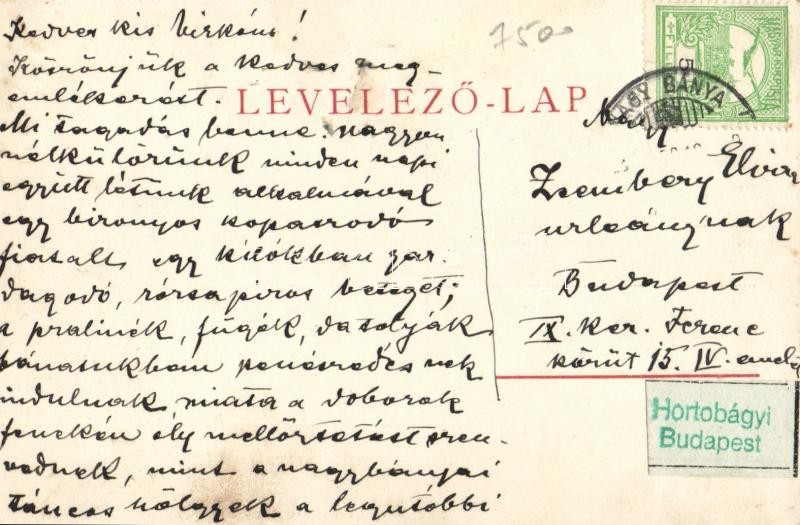 Kedves kis Virkóm!
Köszönjük a kedves meg-
emlékezést.
Mi tagadás benne: nagyon
nélkülözünk minden napi
együtt létünk alkalmával
egy bizonyos kopaszodó
fiatalt egy kilókban gaz-
dagodó, rózsapiros beszget;
a pralinék, fügék, datolyák
bánatukban penészedésnek
indulnak miata a doborok
fenekén oly mellőztetést szen-
vednek, mint a nagybányai
táncos hölgyek a legutóbbi
LEVELEZŐ-LAP
7500
5
NAGYBÁNYA
Nagy
Elvira
urleánynak
Budapest
IX. ker. Ferenc
körút 15. IV. emelet
Hortobágyi
Budapest